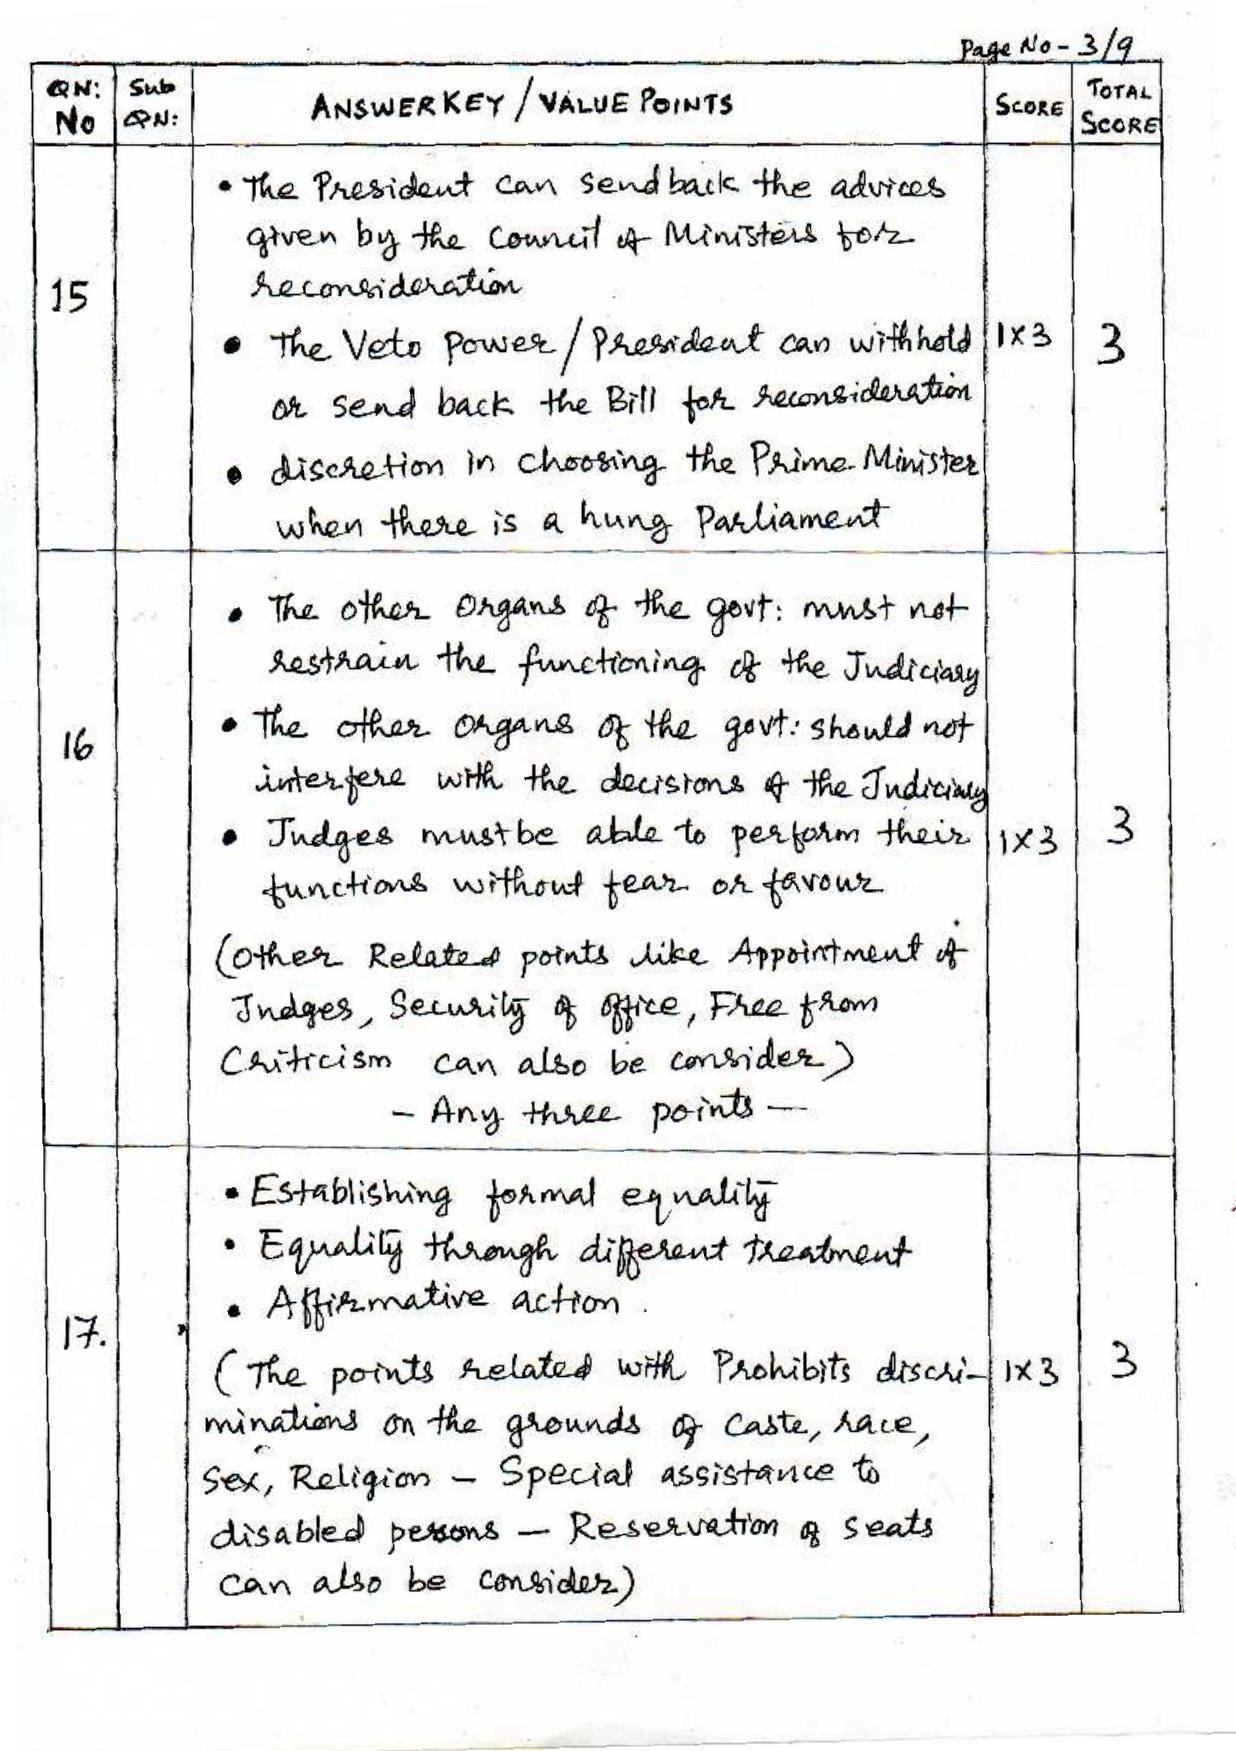 Page No - 3/9
QN: No
Sub QN:
ANSWER KEY / VALUE POINTS
SCORE
TOTAL SCORE
15
• The President can send back the advices
given by the Council of Ministers for
reconsideration
• The Veto Power / President can withhold
or send back the Bill for reconsideration
• discretion in choosing the Prime Minister
when there is a hung Parliament
1x3
3
16
• The other Organs of the govt: must not
restrain the functioning of the Judiciary
• The other organs of the govt: should not
interfere with the decisions of the Judiciary
• Judges must be able to perform their
functions without fear or favour
(Other Related points like Appointment of
Judges, Security of office, Free from
Criticism can also be consider)
- Any three points -
1x3
3
17.
• Establishing formal equality
• Equality through different treatment
• Affirmative action.
(The points related with Prohibits discri-
minations on the grounds of caste, race,
Sex, Religion - Special assistance to
disabled persons - Reservation of seats
can also be consider)
1x3
3